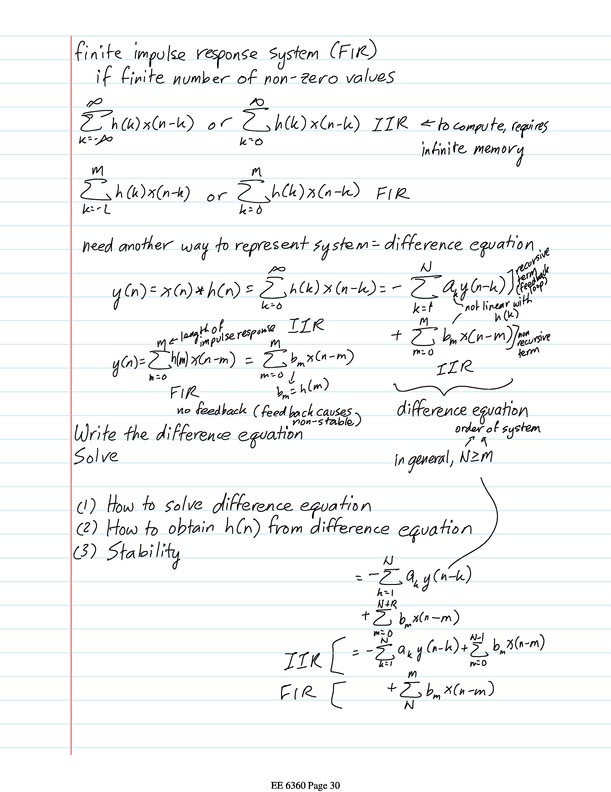 finite impulse response system (FIR)
if finite number of non-zero values
∞∑k=-∞ h(k)x(n-k) or ∞∑k=0 h(k)x(n-k) IIR ← to compute, requires
infinite memory
M∑k=-L h(k)x(n-k) or M∑k=0 h(k)x(n-k) FIR
need another way to represent system = difference equation
y(n) = x(n)*h(n) = ∞∑k=0 h(k)x(n-k) = - N∑k=1 a_k y(n-k) ] recursive term (feedback loop)
not linear with h(k)
IIR
+ M∑m=0 b_m x(n-m) ] non recursive term
M ← length of impulse response
y(n) = M∑m=0 h(m)x(n-m) = M∑m=0 b_m x(n-m)
IIR
↓
b_m = h(m)
FIR
no feedback (feedback causes non-stable)
difference equation
order of system
in general, N≥M
Write the difference equation
Solve
(1) How to solve difference equation
(2) How to obtain h(n) from difference equation
(3) Stability
= - N∑k=1 a_k y(n-k)
+ N+R∑m=0 b_m x(n-m)
IIR [ = - N∑k=1 a_k y(n-k) + N-1∑m=0 b_m x(n-m)
FIR [ + M∑N b_m x(n-m)
EE 6360 Page 30